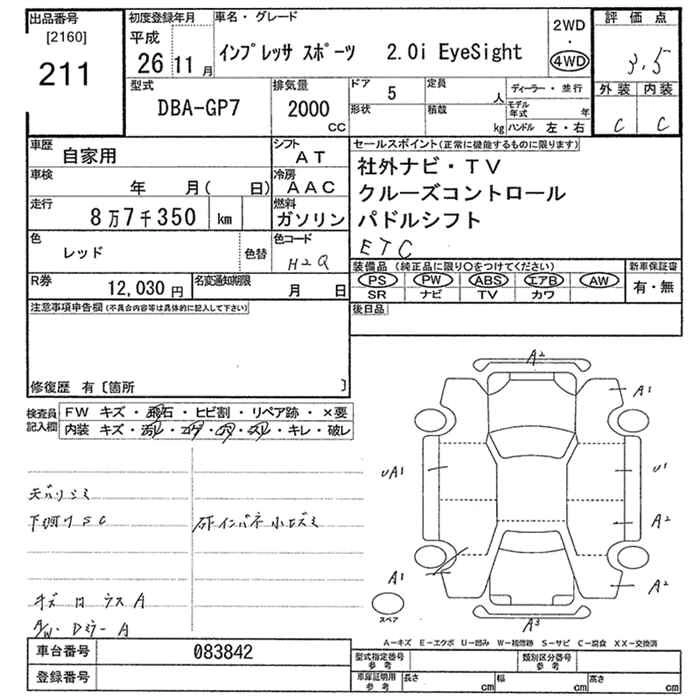 出品番号
[2160]
211
初度登録年月
平成
26 11月
車名・グレード
インプレッサ スポーツ 2.0i EyeSight
2WD
・
4WD
評価点
3.5
外装 内装
C C
型式
DBA-GP7
排気量
2000
CC
ドア 5
定員 人
形状
積載 kg
ディーラー・並行
モデル年式 年
ハンドル 左・右
車歴
自家用
シフト
AT
車検
年 月( 日)
冷房
AAC
走行
8万7千350 km
燃料
ガソリン
色
レッド
色替
色コード
H2Q
R券
12,030円
名変通知期限
月 日
セールスポイント(正常に機能するものに限ります)
社外ナビ・TV
クルーズコントロール
パドルシフト
ETC
装備品 (純正品に限り〇をつけてください)
PS PW ABS エアB AW
SR ナビ TV カワ
新車保証書
有・無
後日品
注意事項申告欄(不具合内容等は具体的に記入して下さい)
修復歴 有〔箇所 〕
検査員記入欄
FW キズ・飛石・ヒビ割・リペア跡・×要
内装 キズ・汚レ・コゲ・穴・スレ・キレ・破レ
天ハリシミ
下廻りSC
キズ
A/W・Dミラー A
A2
A1
UA1
U1
A2
A1
A2
A3
スペア
A-キズ E-エクボ U-凹み W-補修跡 S-サビ C-腐食 XX-交換済
車台番号
083842
登録番号
型式指定番号
参考
類別区分番号
参考
車庫証明用
参考
長さ cm
幅 cm
高さ cm